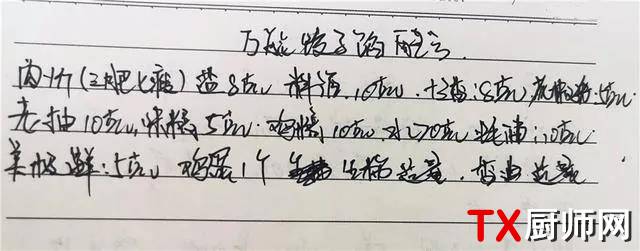 万能饺子馅配方
肉1斤(三肥七瘦)盐8克 料酒10克.十三香:8克 花椒粉:5克
老抽10克,味精5克.鸡精10克.水70克 蚝油:10克
美极鲜:5克 鸡蛋1个 生粉适量.香油适量
TX厨师网